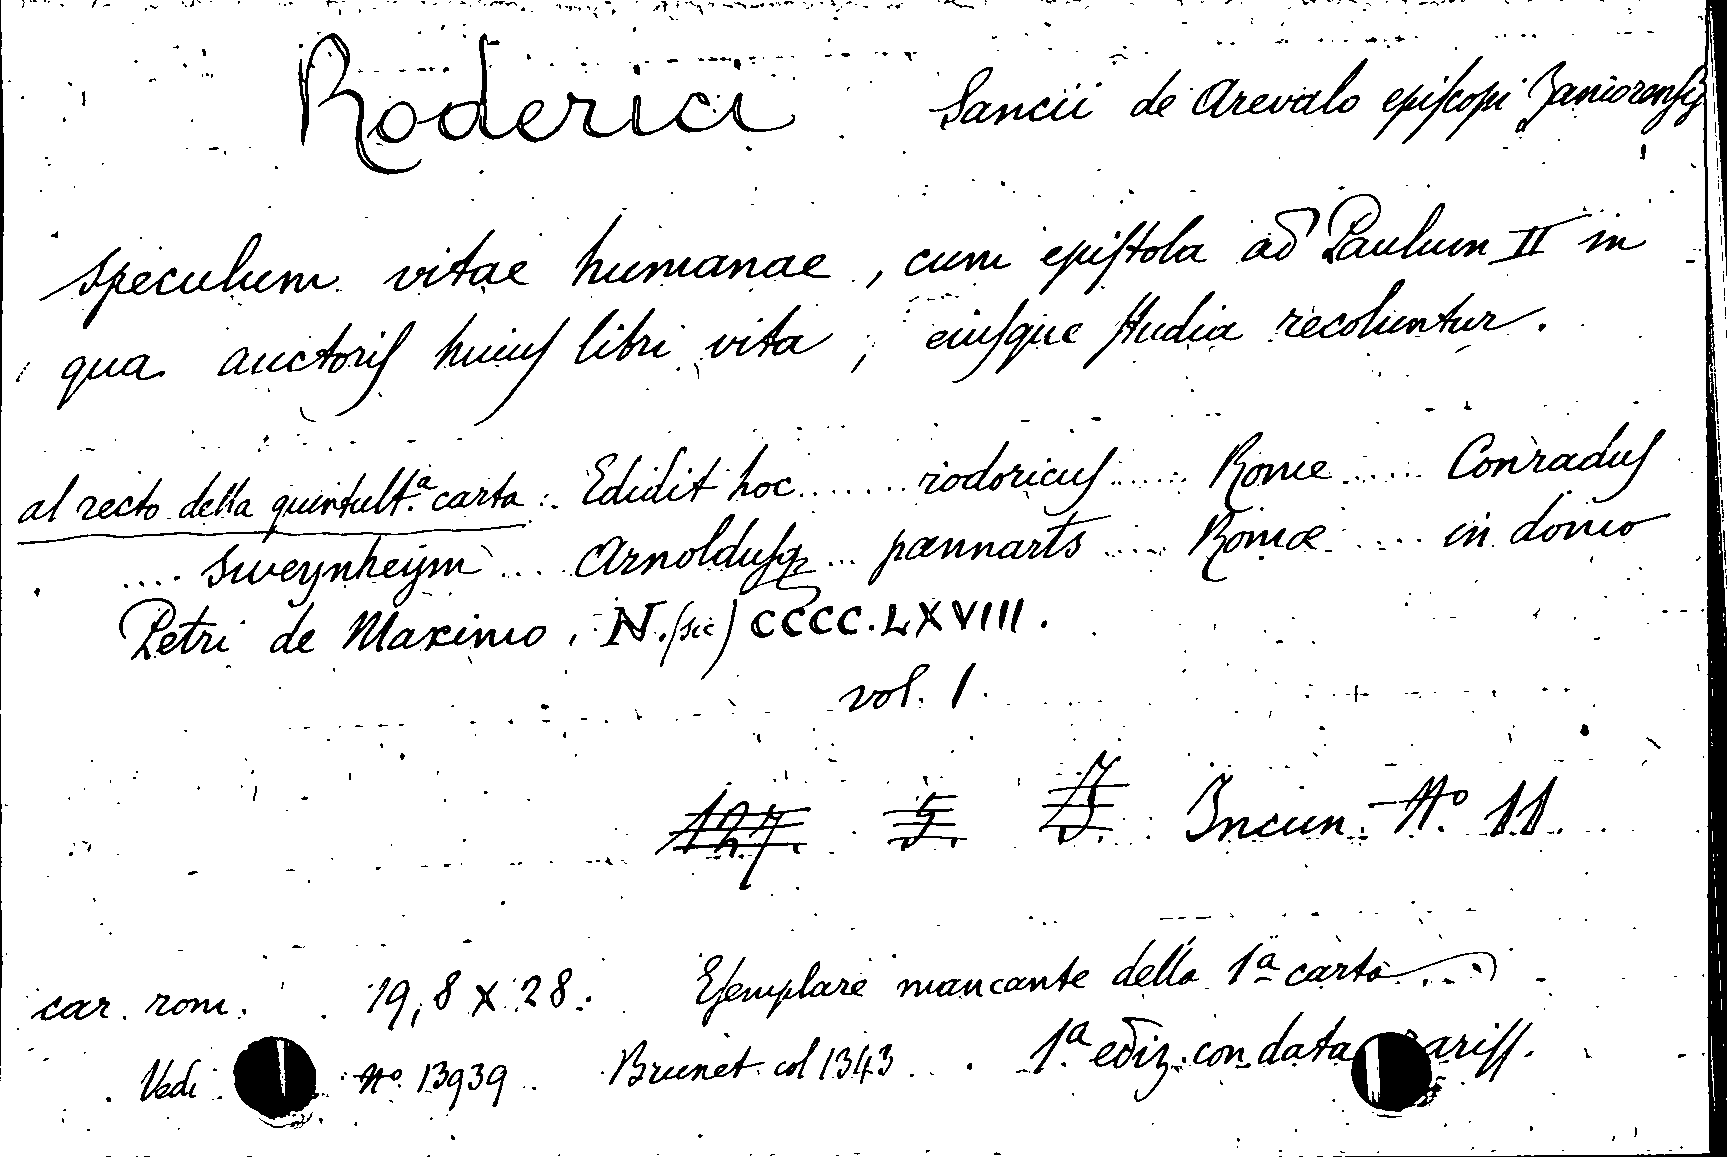 Roderici Sancii de Arevalo episcopi Zamorensis
speculum vitae humanae, cum epistola ad Paulum II in
qua auctoris huius libri vita, eiusque studia recoluntur.
al recto della quintult.ª carta: Edidit hoc....... rodoricus...... Rome..... Conradus
.... sweynheym... Arnoldusq... pannarts.... Romae..... in domo
Petri de Maximo. N.(sic) CCCC.LXVIII.
vol. 1.
127. 5. 7 5. Incun. Nº. 11.
car. rom. 19,8 X 28. Esemplare mancante della 1ª carta...
Vedi Nº 13939. Brunet col 1343. 1ª ediz. con data ariss.